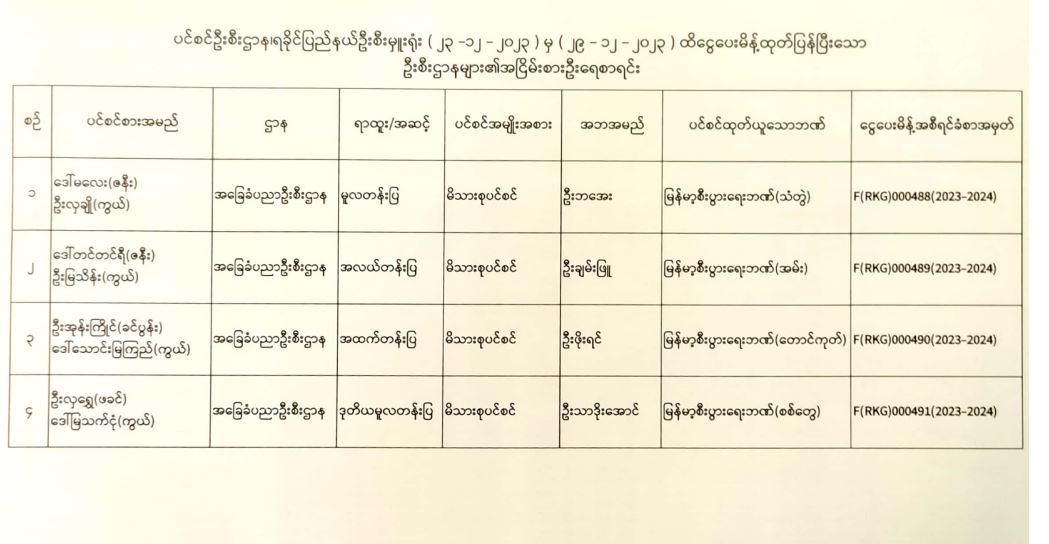 ပင်စင်ဦးစီးဌာန၊ရခိုင်ပြည်နယ်ဦးစီးမှူးရုံး ( ၂၃ -၁၂ - ၂၀၂၃ ) မှ ( ၂၉ - ၁၂ -၂၀၂၃ ) ထိငွေပေးမိန့်ထုတ်ပြန်ပြီးသော
ဦးစီးဌာနများ၏အငြိမ်းစားဦးရေစာရင်း
စဉ် ပင်စင်စားအမည် ဌာန ရာထူး/အဆင့် ပင်စင်အမျိုးအစား အဘအမည် ပင်စင်ထုတ်ယူသောဘဏ် ငွေပေးမိန့်အစီရင်ခံစာအမှတ်
၁ ဒေါ်မလေး(ဇနီး)
ဦးလှချို(ကွယ်) အခြေခံပညာဦးစီးဌာန မူလတန်းပြ မိသားစုပင်စင် ဦးဘအေး မြန်မာ့စီးပွားရေးဘဏ်(သံတွဲ) F(RKG)000488(2023-2024)
၂ ဒေါ်တင်တင်ရီ(ဇနီး)
ဦးမြသိန်း(ကွယ်) အခြေခံပညာဦးစီးဌာန အလယ်တန်းပြ မိသားစုပင်စင် ဦးချမ်းဖြူ မြန်မာ့စီးပွားရေးဘဏ်(အမ်း) F(RKG)000489(2023-2024)
၃ ဦးအုန်းကြိုင်(ခင်ပွန်း)
ဒေါ်သောင်းမြကြည်(ကွယ်) အခြေခံပညာဦးစီးဌာန အထက်တန်းပြ မိသားစုပင်စင် ဦးဖိုးရင် မြန်မာ့စီးပွားရေးဘဏ်(တောင်ကုတ်) F(RKG)000490(2023-2024)
၄ ဦးလှရွှေ(ဖခင်)
ဒေါ်မြသက်ငုံ(ကွယ်) အခြေခံပညာဦးစီးဌာန ဒုတိယမူလတန်းပြ မိသားစုပင်စင် ဦးသာဒိုးအောင် မြန်မာ့စီးပွားရေးဘဏ်(စစ်တွေ) F(RKG)000491(2023-2024)